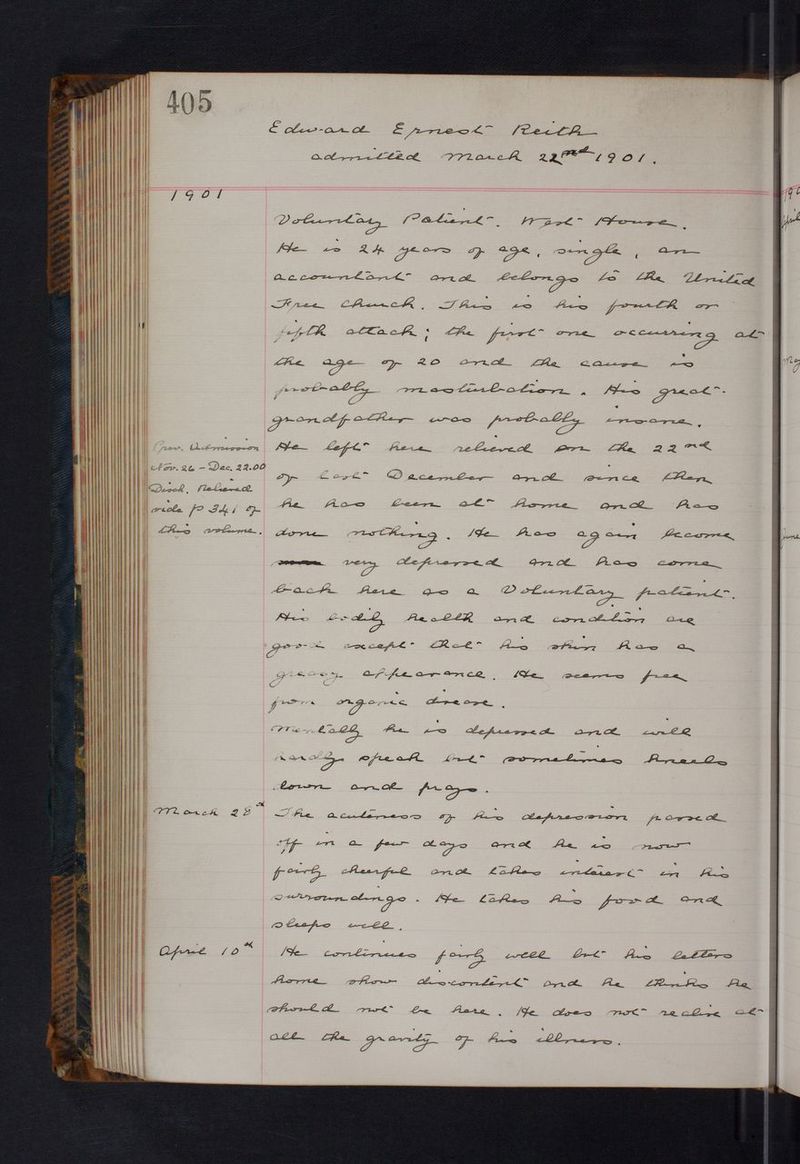 405
Edward Ernest Reith
admitted March 22nd 1901.
1901
Voluntary Patient. West House.
He is 24 years of age, single, an
accountant and belongs to the United
Free Church. This is his fourth or
fifth attack; the first one occurring at
the age of 20 and the cause is
probably masturbation. His great-
grandfather was probably insane.
Prev. Admission
Nov. 26 - Dec. 22.00
Disch. Relieved
vide p 341 of
this volume.
He left here relieved on the 22nd
of last December and since then
he has been at home and has
done nothing. He has again become
very depressed and has come
back here as a Voluntary patient.
His bodily health and condition are
good except that his skin has a
greasy appearance. He seems free
from organic disease.
Mentally he is depressed and will
hardly speak but sometimes kneels
down and prays.
March 28th
The acuteness of his depression passed
off in a few days and he is now
fairly cheerful and takes interest in his
surroundings. He takes his food and
sleeps well.
April 10th
He continues fairly well but his letters
home show discontent and he thinks he
should not be here. He does not realise at
all the gravity of his illness.
190
April
May
June